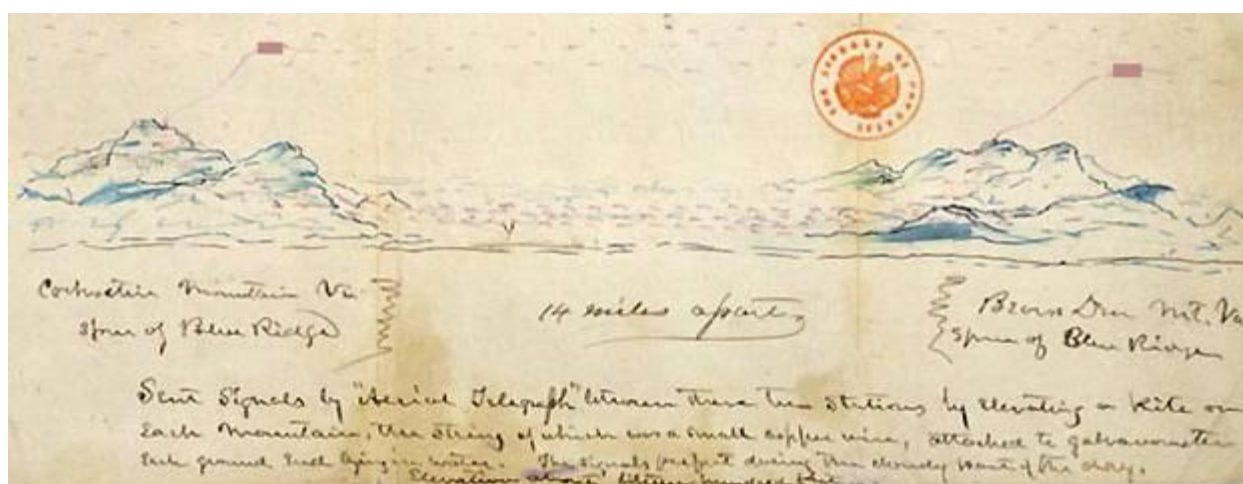 THE LIBRARY OF CONGRESS
Mountain Va.
Spur of Blue Ridge
14 miles apart
Bears Den Mt. Va
Spur of Blue Ridge
Sent Signals by "Aerial Telegraph" between these two Stations by elevating a Kite on
Each Mountain, the String of which was a small copper wire, attached to galvanometer
Each ground End lying in water. The Signals perfect during the cloudy part of the day.
Elevations about fifteen hundred feet